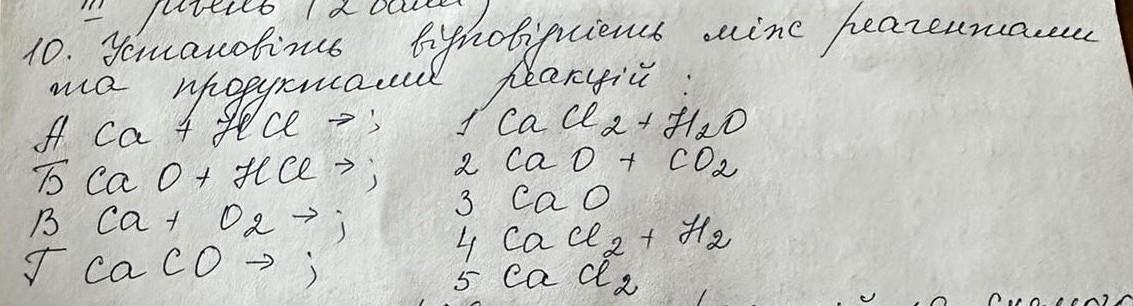 III рівень (2 бали)
10. Установіть відповідність між реагентами
та продуктами реакцій:
А Ca + HCl → ; 1 CaCl2 + H2O
Б CaO + HCl → ; 2 CaO + CO2
В Ca + O2 → ; 3 CaO
Г CaCO → ; 4 CaCl2 + H2
5 CaCl2